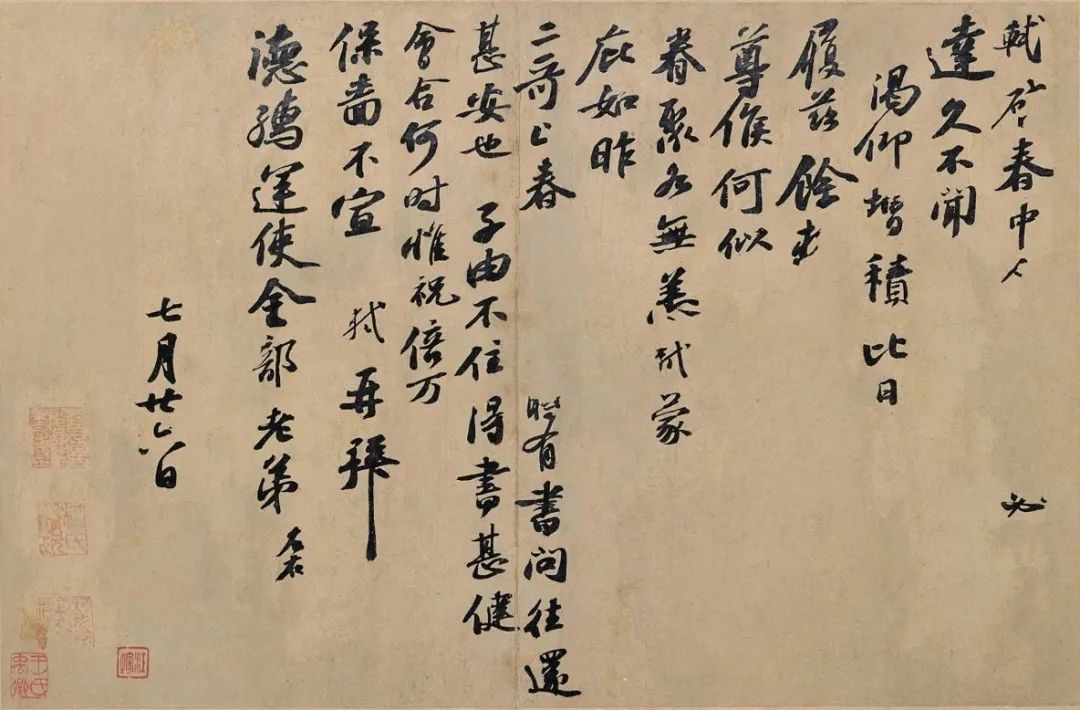 軾啓春中人必
達久不聞
渴仰增積比日
履兹餘
尊候何似
眷聚各無恙軾蒙
庇如昨
二哥上春時有書問往還
甚安也子由不住得書甚健
會合何時惟祝倍万
保嗇不宣軾再拜
德孺運使金部老弟
七月廿六日